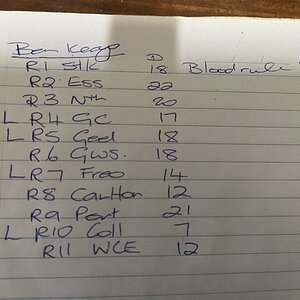 Ben Keays D
R1 Stk 18 Blood rule
R2 Ess 22
R3 Nth 20
L R4 GC 17
L R5 Geel 18
R6 GWS. 18
L R7 Freo 14
R8 Carlton 12
R9 Port 21
L R10 Coll 7
R11 WCE 12